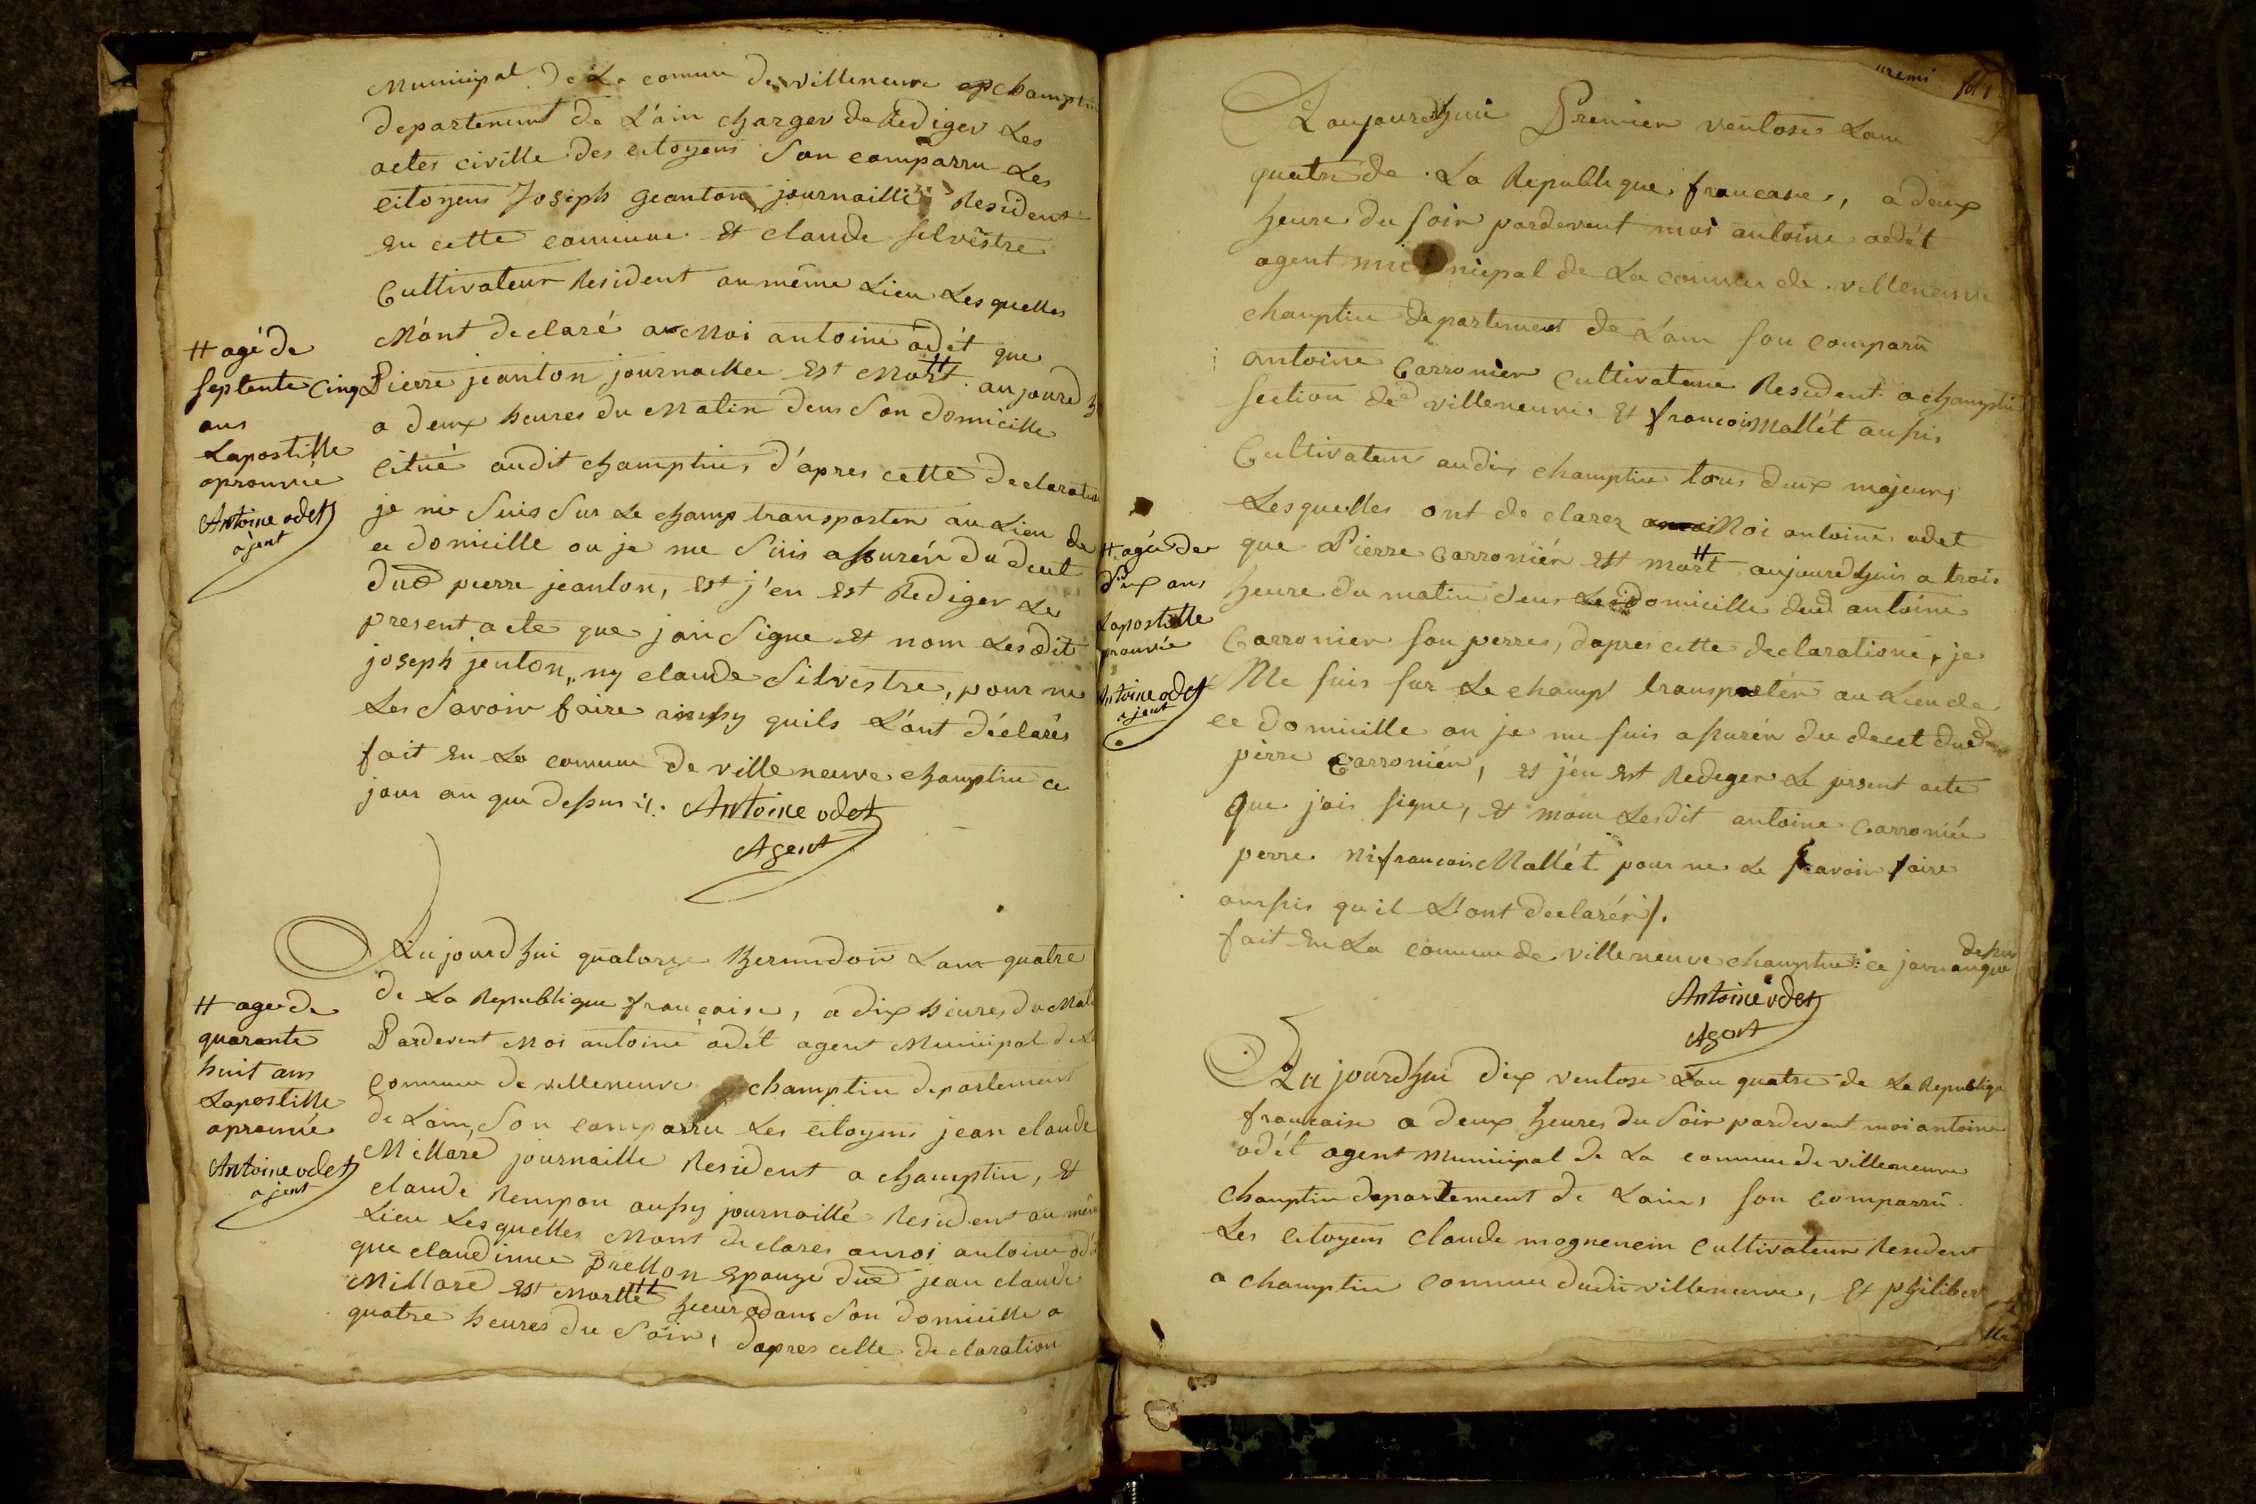 Municipal De La comune de villeneuve champtin
departement de L'ain charger de Rediger Les
actes civille des citoyens Son comparru Les
citoyens Joseph geanton journaillié Resident
en cette commune Et claude silvestre
Cultivateur Resident au même Lieu Lesquelles
M'ont declaré a Moi antoine odét que
Pierre jeanton journaillee Est Mort # aujourd
a deux heures du Matin dens Son domicille
citué audit champtin, d'apres cette declaration
je me Suis Sur Le champ transporter au Lieu de
ce domicille ou je me Suis assurér du decet
dud pierre jeanton, Est j'en Est Rediger Le
present acte que jai Signe Et nom Lesdit
joseph jenton, ny claude Silvestre, pour ne
Les Savoir faire ainssy quils L'ont déclarés
fait En La comune de villeneuve champtin ce
jour an que dessus ./. Antoine odet
Agent
# agé de
septente cinq
ans
Lapostille
aprouvée
Antoine odet
ajent
Aujourdhui quatorze Thermidor Lan quatre
de La Republique française, a dix heures du Mat
Pardevent Moi antoine odét agent Municipal de La
comune de villeneuve champtin departement
de Lain, Son comparru Les citoyens jean claude
Millard journaille Resident a champtin, Et
claude Rempon aussy journaillé Resident au même
Lieu Lesquelles Mont declares amoi antoine odét
que claudinne Prellon Epouze dud jean claude
Millard Est Mortte # hieur dans Son domicille a
quatre heures du Soir, dapres cette declaration
# age de
quarante
huit ans
Lapostille
aprouvée
Antoine odet
ajent
Laujourdhui Premier ventose Lan
quatre de La Republique francaise, a deux
heure du soir pardevent moi antoine odét
agent municipal de La comune de villeneuve
champtin departement de L'ain son comparu
antoine Carronier cultivateur Resident a champtin
section de villeneuve Et francois Mallét aussi
Cultivateur audis champtin tous deux majeurs
Lesquelles ont declarez Moi antoine odet
que Pierre Carroniér Est mort # aujourdhuis a trois
heure du matin dens Le domicille dud antoine
Carronier son perre, dapres cette declaratione, je
Me suis sur Le champ transportér au Lieu de
ce domicille ou je me suis assurér du decet dud
pierre Carroniér, Es j'en Est Redeger Le present acte
que jais signe, Et nom Lesdit antoine Carroniée
perre ni francois Mallét pour ne Le scavoir faire
ainssis qu'il L'ont declarér ./.
fait En La comune de villeneuve champtin ce jour an que
dessus
Antoine odet
Agent
# agée de
dix ans
Lapostille
prouvée
Antoine odet
ajent
Aujourdhui dix ventose Lan quatre de La Republique
francaise a deux heures du Soir pardevent moi antoine
odét agent Municipal de La commune de villeneuve
champtin departement de Lain, son comparru
Les citoyens Claude mognenein Cultivateur Resident
a champtin commune dudi villeneuve, Et philiber